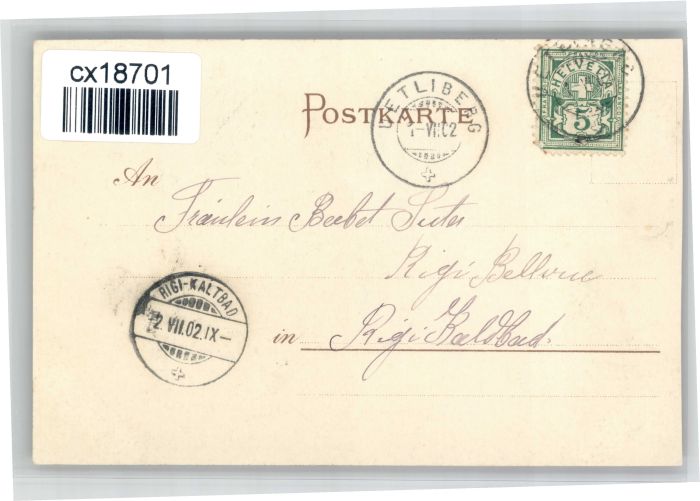 cx18701
POSTKARTE
UETLIBERG
-VII.02
HELVETIA
5
An
Fräulein Babet Suter
Rigi Bellvue
RIGI-KALTBAD
2.VII.02.IX-
in Rigi Kaltbad.